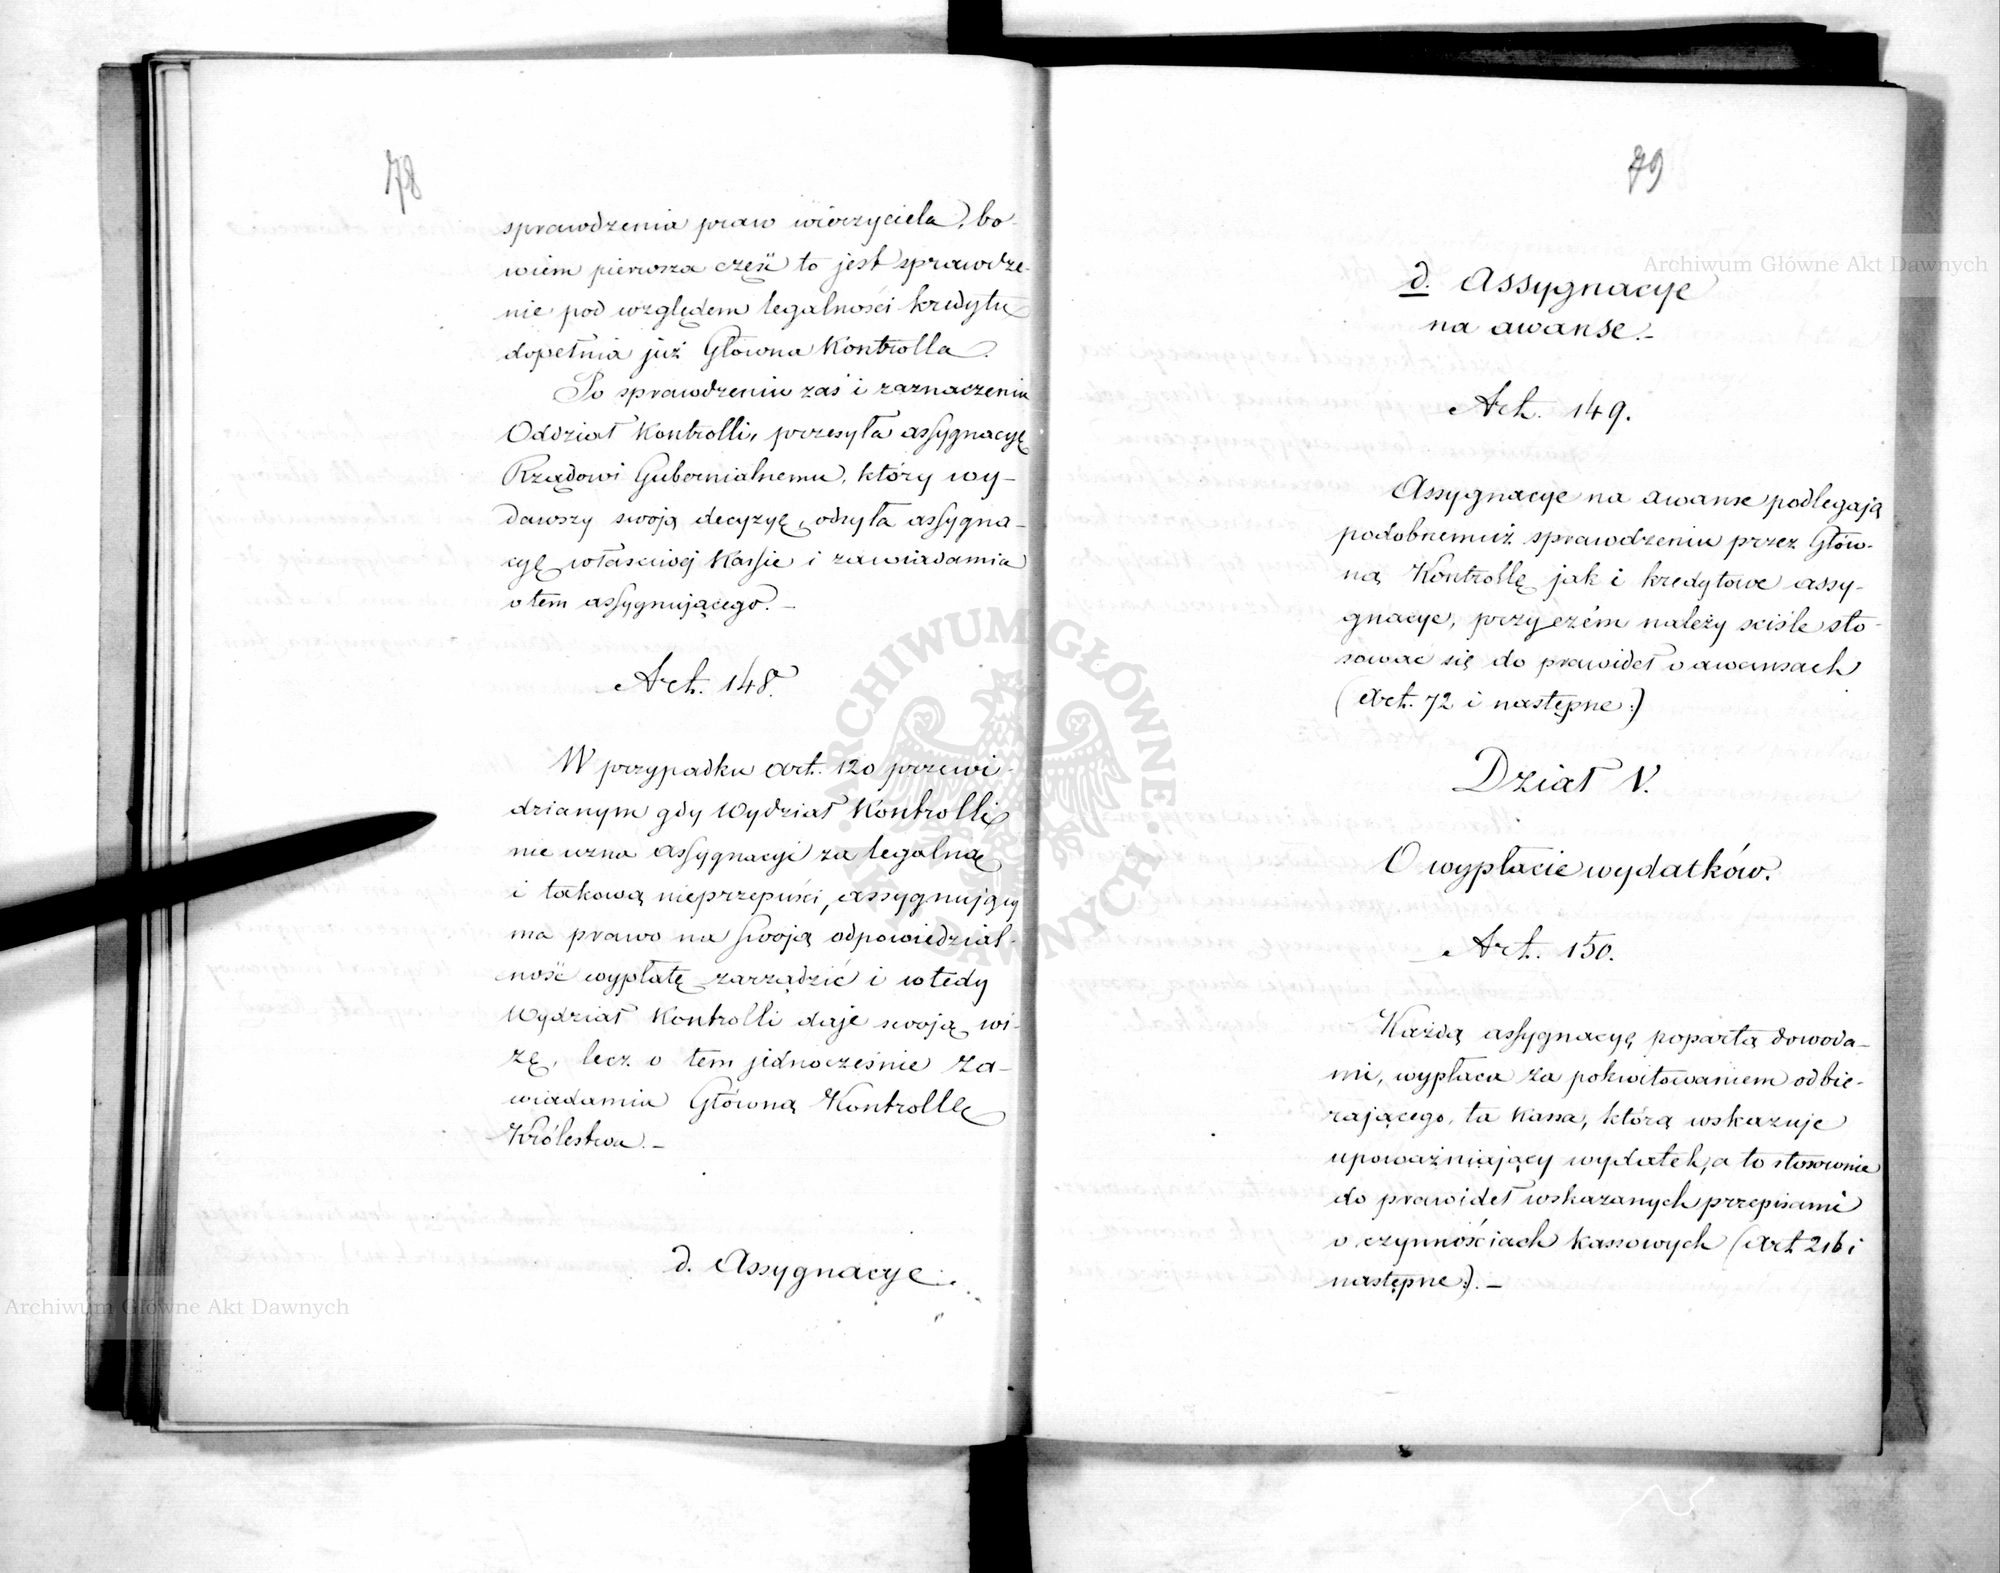 78
sprawdzenia praw wierzyciela), bo-
wiem pierwsza część to jest sprawdze-
nie pod względem legalności kredytu
dopełnia już Główna Kontrolla.
Po sprawdzeniu zaś i zaznaczeniu
Oddział Kontrolli, przesyła assygnacyę
Rządowi Gubernialnemu, który wy-
dawszy swoją decyzyę, odsyła assygna-
cyę właściwej Kassie i zawiadamia
o tem assygnującego. –
Art. 148.
W przypadku art. 120 przewi-
dzianym gdy Wydział Kontrolli
nie uzna assygnacyi za legalną
i takową nieprzepuści, assygnujący
ma prawo na swoją odpowiedzial-
ność wypłatę zarządzić i wtedy
Wydział Kontrolli daje swoją wi-
zę, lecz o tem jednocześnie za-
wiadamia Główną Kontrollę
Królestwa. –
d. Assygnacye.
79
d. Assygnacye
na awanse. –
Art. 149.
Assygnacye na awanse podlegają
podobnemuż sprawdzeniu przez Głów-
ną Kontrollę jak i kredytowe assy-
gnacye, przyczém należy ściśle sto-
sować się do prawideł o awansach
(Art. 72 i następne:)
Dział V.
O wypłacie wydatków.
Art. 150.
Każdą assygnacyę popartą dowoda-
mi, wypłaca za pokwitowaniem odbie-
rającego, ta Kassa, którą wskazuje
upoważniający wydatek, a to stosownie
do prawideł wskazanych przepisami
o czynnościach kassowych (Art 216 i
następne:). –
Archiwum Główne Akt Dawnych
Archiwum Główne Akt Dawnych
ARCHIWUM GŁÓWNE AKT DAWNYCH